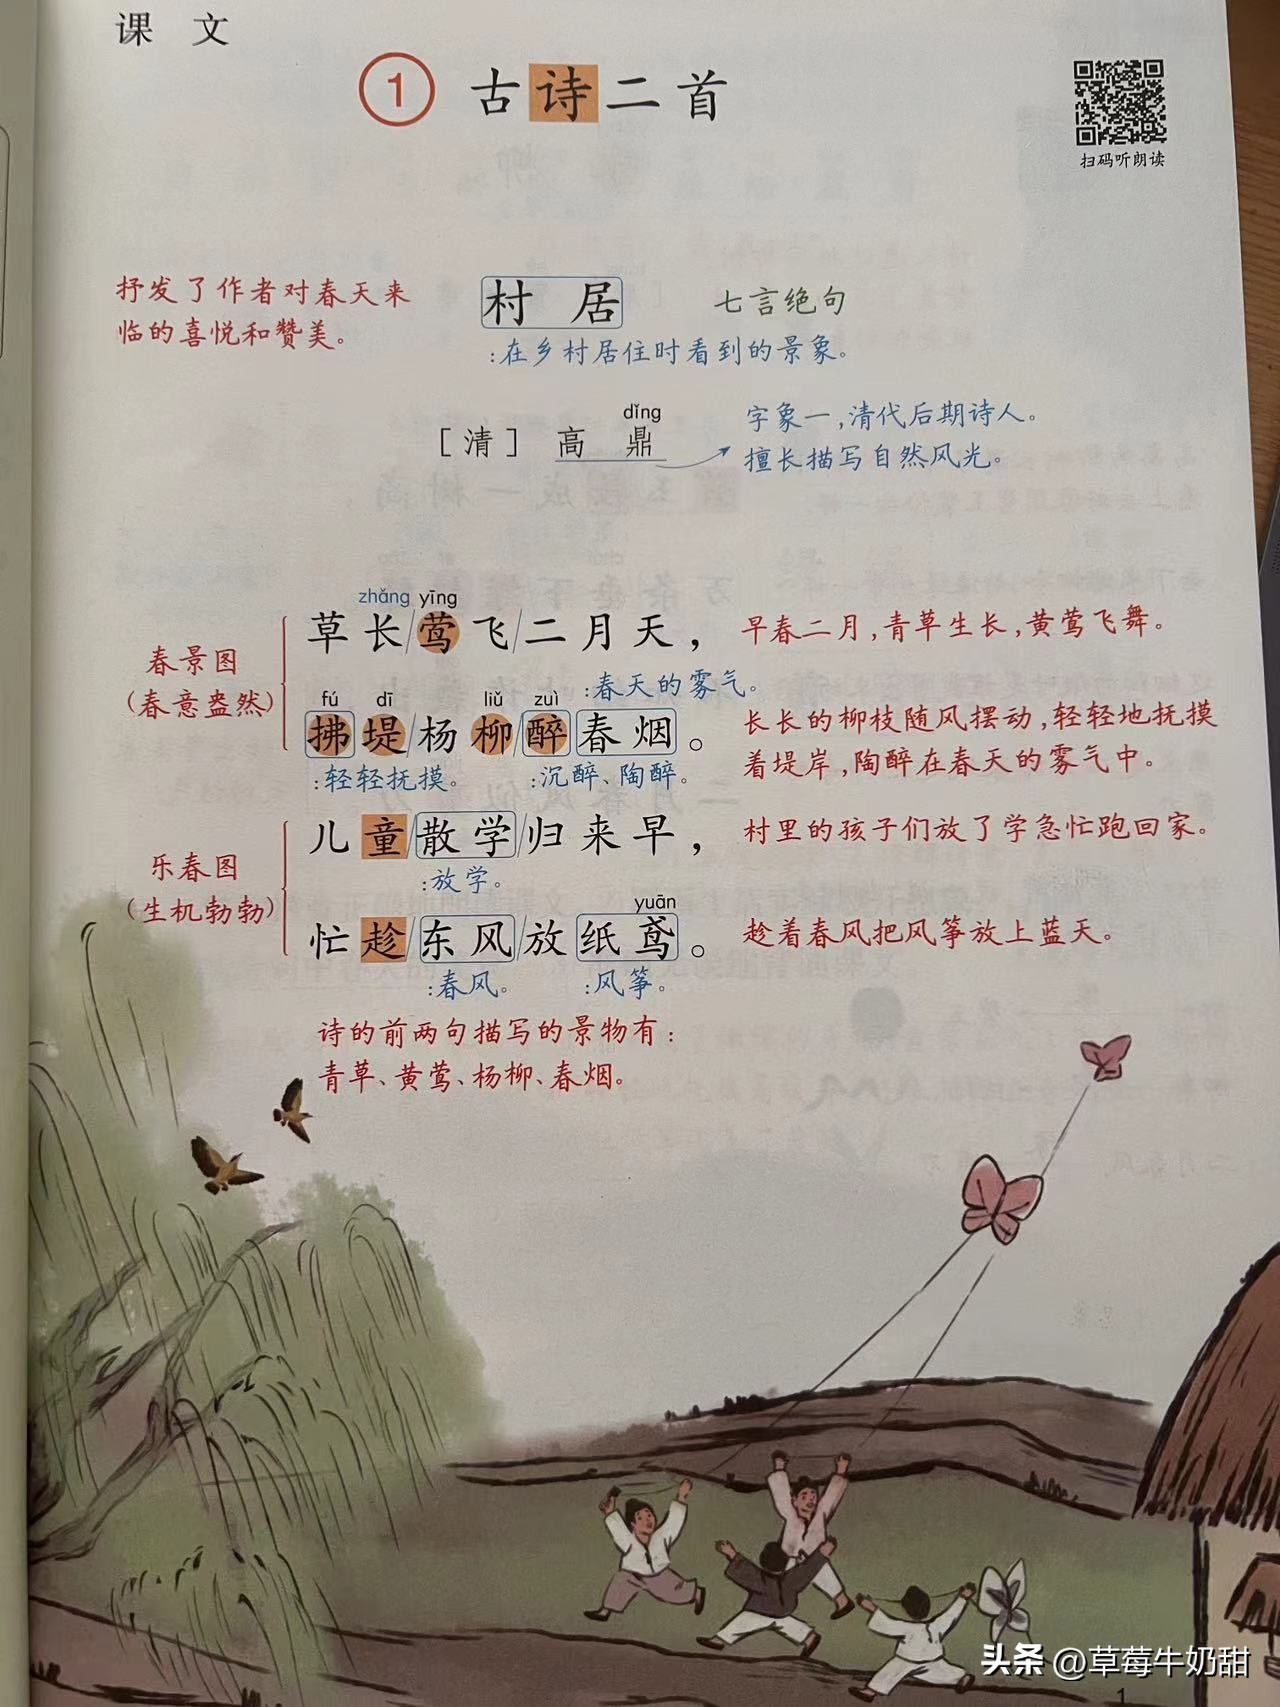 课 文
1 古诗二首
扫码听朗读
抒发了作者对春天来
临的喜悦和赞美。
村 居 七言绝句
:在乡村居住时看到的景象。
dǐng
[清] 高 鼎
字象一,清代后期诗人。
擅长描写自然风光。
春景图
(春意盎然)
zhǎng yīng
草长/莺飞/二月天,
早春二月,青草生长,黄莺飞舞。
:春天的雾气。
fú dī liǔ zuì
拂堤/杨柳/醉春烟。
长长的柳枝随风摆动,轻轻地抚摸
着堤岸,陶醉在春天的雾气中。
:轻轻抚摸。 :沉醉、陶醉。
乐春图
(生机勃勃)
儿童/散学/归来早,
村里的孩子们放了学急忙跑回家。
:放学。
yuān
忙趁/东风/放纸鸢。
趁着春风把风筝放上蓝天。
:春风。 :风筝。
诗的前两句描写的景物有:
青草、黄莺、杨柳、春烟。
头条 @草莓牛奶甜
1